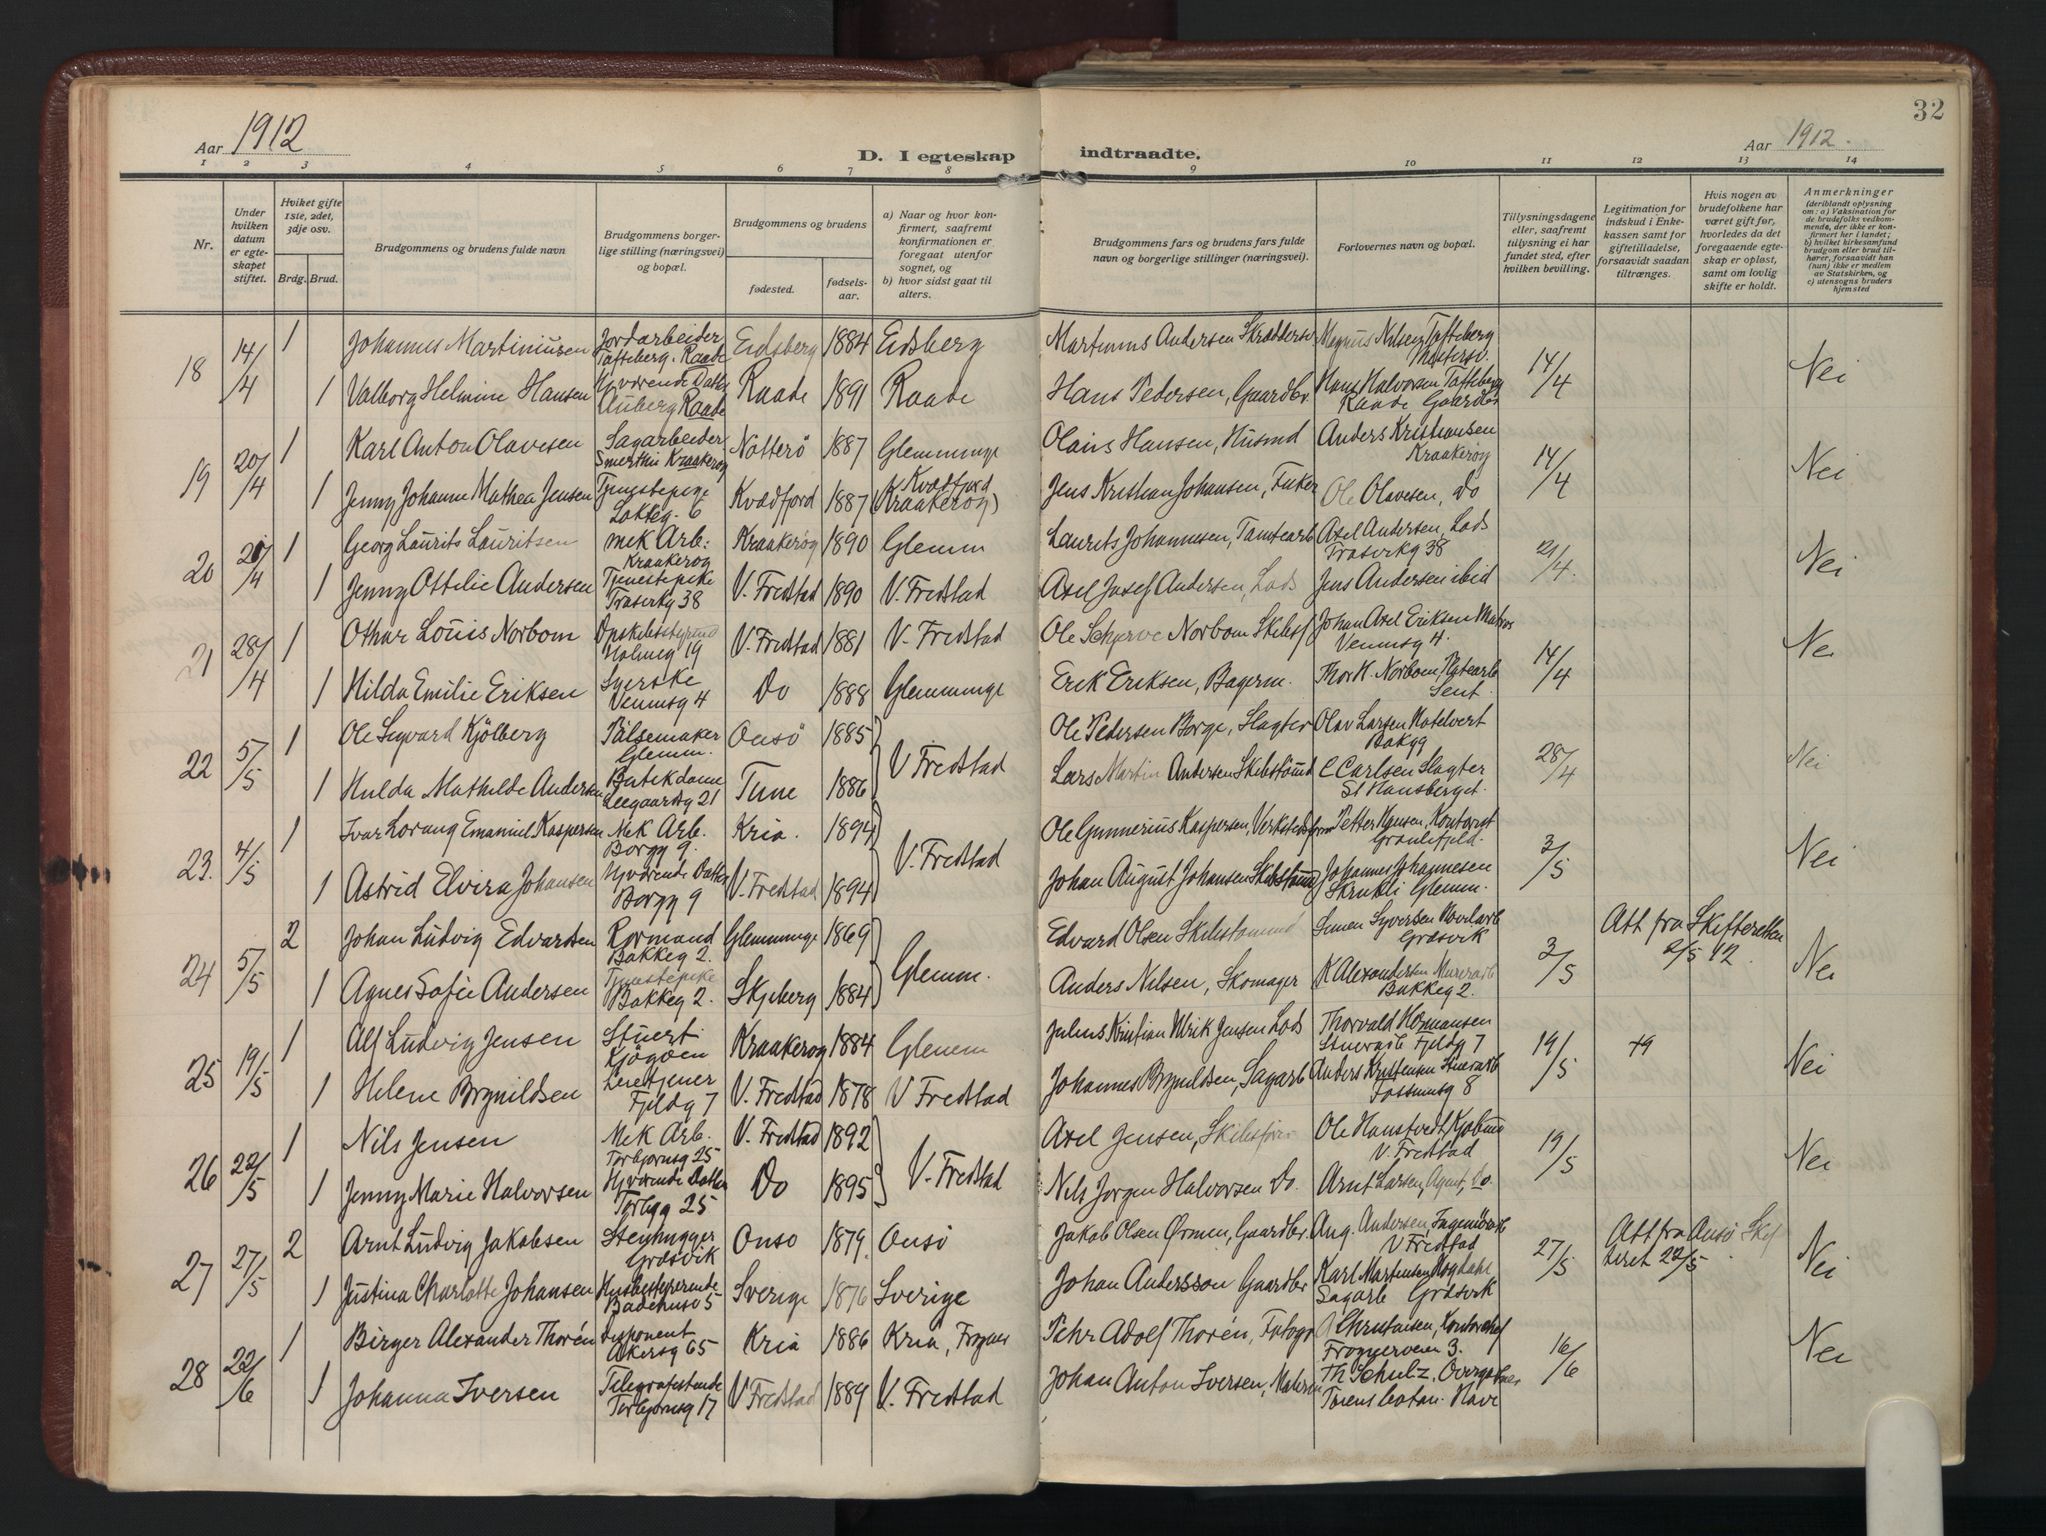 32
Aar 1912
D. I egteskap
indtraadte.
Aar 1912.
1 2 3 4 5 6 7 8 9 10 11 12 13 14
Nr.
Under hvilken datum er egteskapet stiftet.
Hviket gifte 1ste, 2det, 3dje osv.
Brdg. Brud.
Brudgommens og brudens fulde navn
Brudgommens borgerlige stilling (næringsvei) og bopæl.
Brudgommens og brudens
fødested.
fødselsaar.
a) Naar og hvor konfirmert, saafremt konfirmationen er foregaat utenfor sognet, og
b) hvor sidst gaat til alters.
Brudgommens fars og brudens fars fulde navn og borgerlige stillinger (næringsvei).
Forlovernes navn og bopæl.
Tillysningsdagene eller, saafremt tillysning ei har fundet sted, efter hvilken bevilling.
Legitimation for indskud i Enkekassen samt for giftetilladelse, forsaavidt saadan tiltrænges.
Hvis nogen av brudefolkene har været gift før, hvorledes da det foregaaende egteskap er opløst, samt om lovlig skifte er holdt.
Anmerkninger (deriblandt oplysning om: a) Vaksination for de brudefolks vedkommende, der ikke er konfirmert her i landet; b) hvilket kirkesamfund brudgom eller brud tilhører, forsaavidt han (hun) ikke er medlem av Statskirken, og c) utensogns bruders hjemsted
18 14/4 1 Johannes Martiniusen Jordarbeider Tofteberg. Raade Eidsberg 1884 Eidsberg Martinus Andersen Magnus Nilsen Tofteberg 14/4 Nei
1 Valborg Helmine Hansen Hjværende Datter Auberg Raade Raade 1891 Raade Hans Pedersen, Gaardbr. Hans Halvorsen Tofteberg Raade Gaardbr
19 20/4 1 Karl Anton Olavesen Sagarbeider Kraakerøy Nøtterö 1887 Glemminge Olaus Hansen, Husmd Anders Kristiansen Kraakerøy 14/4 Nei
1 Jenny Johanne Mathea Jensen Tjenestepige Løkkeg. 6 Kvædfjord 1887 Kvædfjord (Kraakerøy) Jens Kristian Johansen, Fisker Ole Olavesen, Do
20 21/4 1 Georg Laurits Lauritsen mek Arb: Kraakerøy Kraakerøy 1890 Glemm Laurits Johannesen, Tomtearb Axel Andersen, Lods Traserkg 38 21/4. Nei
1 Jenny Ottilie Andersen Tjenestepike Traserkg 38 V. Fredstad 1890 V. Fredstad Axel Josef Andersen, Lods Jens Andersen ibid
21 28/4 1 Othar Louis Norbom Holmeg 19 V. Fredstad 1881 V. Fredstad Ole Schjerve Norbom Skibsf Johan Axel Eriksen Matros Vennsg 4. 14/4 Nei
1 Hilda Emilie Eriksen Syerske Vennsg 4 Do 1888 Glemminge Erik Eriksen, Bagerm. Thor H. Norbom, Platearb
22 5/5 1 Ole Sigvard Kjölberg Pølsemaker Glemm. Onsö 1885 V Fredstad Ole Pedersen Borge, Slagter Olav Larsen Hatelvert Bakg 9 28/4 Nei
1 Hulda Mathilde Andersen Butikdame Leegaardsg 21 Tune 1886 Lars Martin Andersen Skibstömmd C Carlsen Slagter St Hansberget.
23. 4/5 1 Ivar Lorang Emanuel Kaspersen Mek Arb. Borgg 9. Kria. 1894 V. Fredstad Ole Gunnerius Kaspersen, Verkstedsform Petter Hansen, Kontorist 3/5 Nei
1 Astrid Elvira Johansen Hjværende Datter Borgg 9 V. Fredstad 1894 Johan August Johansen Skibstömmd Johannes Johannesen Skrukli Glemm.
24 5/5 2 Johan Ludvig Edvardsen Rormand Bakkeg 2. Glemminge 1869 Glemm. Edvard Olsen Skibstömmd Simen Syversen Hövlarb Græsvik 3/5 Att fra Skifteretten 2/5 12 Nei
1 Agnes Sofie Andersen Tjenestepike Bakkeg 2. Skjeberg 1884 Anders Nilsen, Skomager K Alexandersen Murerarb Bakkeg 2.
25 19/5 1 Alf Ludvig Jensen Stuert Kjøgøen Kraakerøy 1884 Glemm Julius Kristian Ulrik Jensen Lods Thorvald Hermansen Stuerarb Fjeldg 7 19/5 +9 Nei
1 Helene Brynildsen Fjeldg 7 V. Fredstad 1878 V Fredstad Johannes Brynildsen, Sagarb Anders Kristensen Stuerarb Fossumsg 8
26 22/5 1 Nils Jensen Mek Arb. Torbjornsg 25 V. Fredstad 1892 V. Fredstad Axel Jensen, Skibsfører Ole Hanstvedt, Kjøbmd V. Fredstad 19/5 Nei
1 Jenny Marie Halvorsen Hjværende Datter Torbgg 25 Do 1895 Nils Jørgen Halvorsen Do. Arnt Larsen, Agent, Do.
27 27/5 2 Arnt Ludvig Jakobsen Stenhugger Græsvik Onso 1879. Onsö Jakob Olsen Ørmen, Gaardbr. Aug. Andersen V Fredstad 27/5 Att fra Onsö Skifteret 22/5 Nei
1 Justina Charlotte Johansen Husbestyrerinde Badehusg 5 Sverige 1876 Sverige Johan Andersson Gaardbr Karl Martinsen Sagarb Græsvik
28 22/6 1 Birger Alexander Thorén Disponent Akersg 65 Kria 1886 Kria, Frogner Pehr Adolf Thorén, Fotogr A Christensen, Kontorchef Frognerveien 3. 16/6 Nei
1 Johanna Iversen Telegrafistinde Torbjornsg 17 V Fredstad 1889 V. Fredstad Johan Anton Iversen, Th Schulz, Tøiens botan. Have